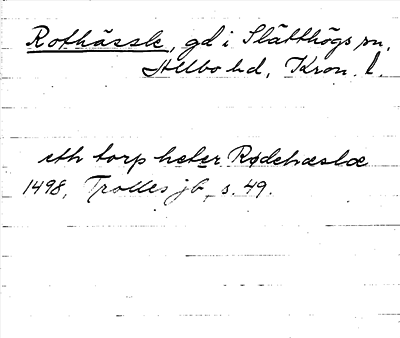 Rothässle, gd i Slätthögs sn,
Allbo hd, Kron. l.
eth torp heter Rødehæslæ
1498, Trolles jb, s. 49.